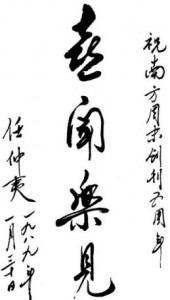 祝南方周末创刊五周年
喜闻樂见
任仲夷
一九八九年
一月三十日